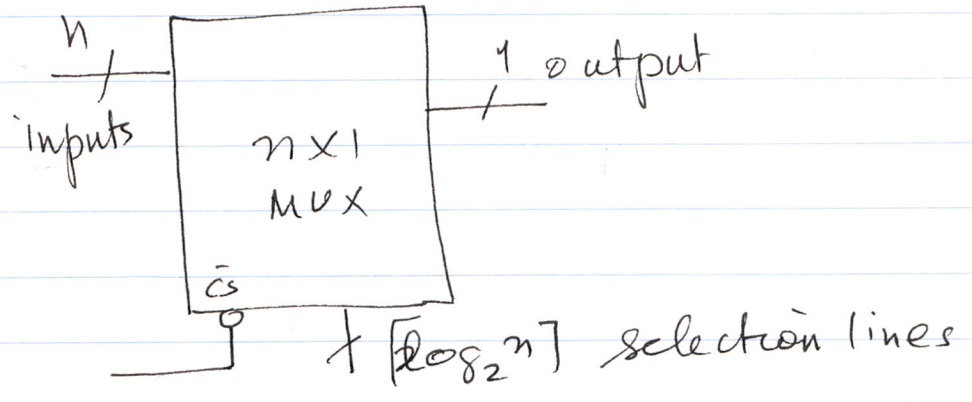 n
inputs
1 output
n×1
MUX
C̅s
⌈log₂n⌉ selection lines